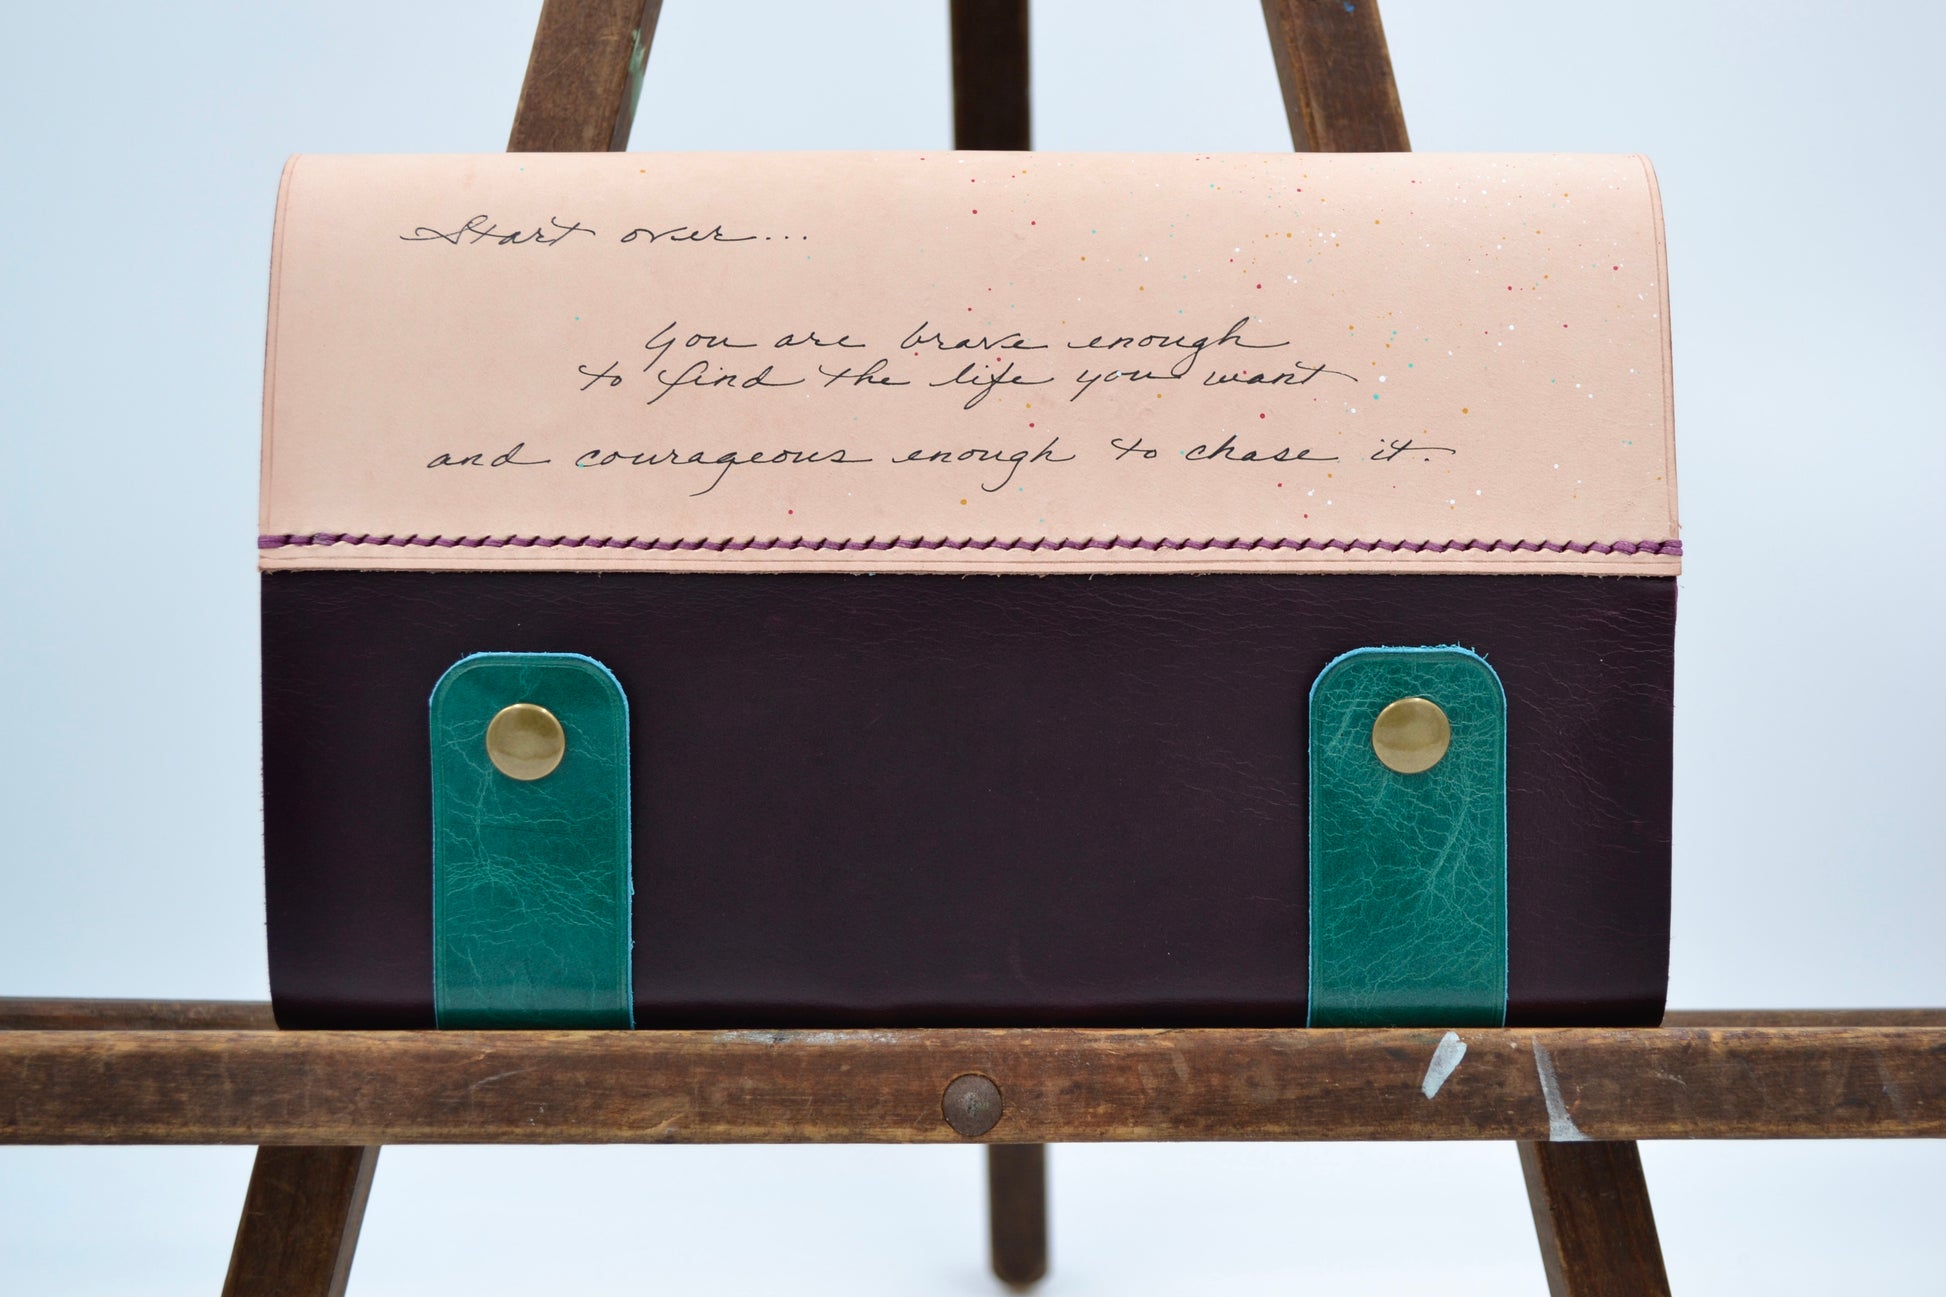 Start over...
you are brave enough
to find the life you want
and courageous enough to chase it.